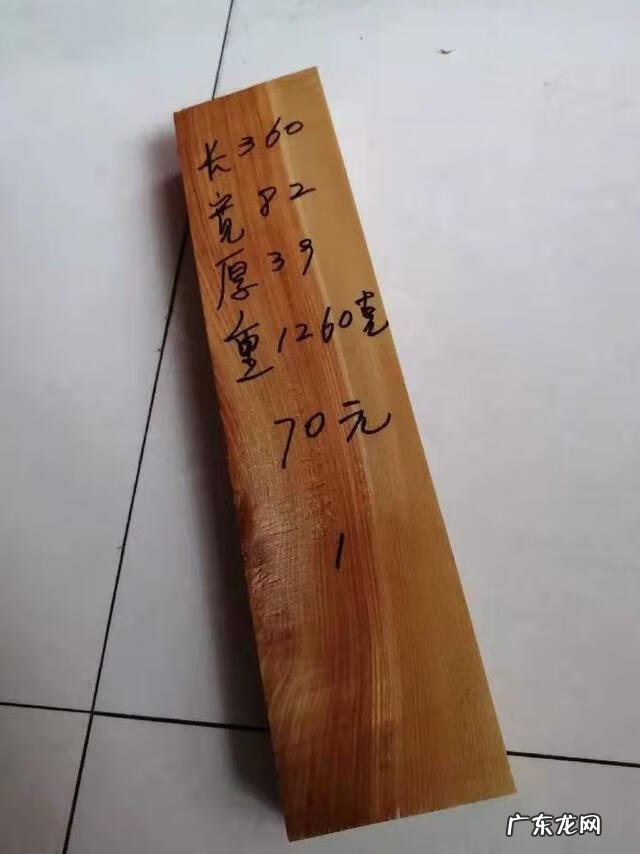 长360
宽82
厚39
重1260克
70元
1
广东龙网